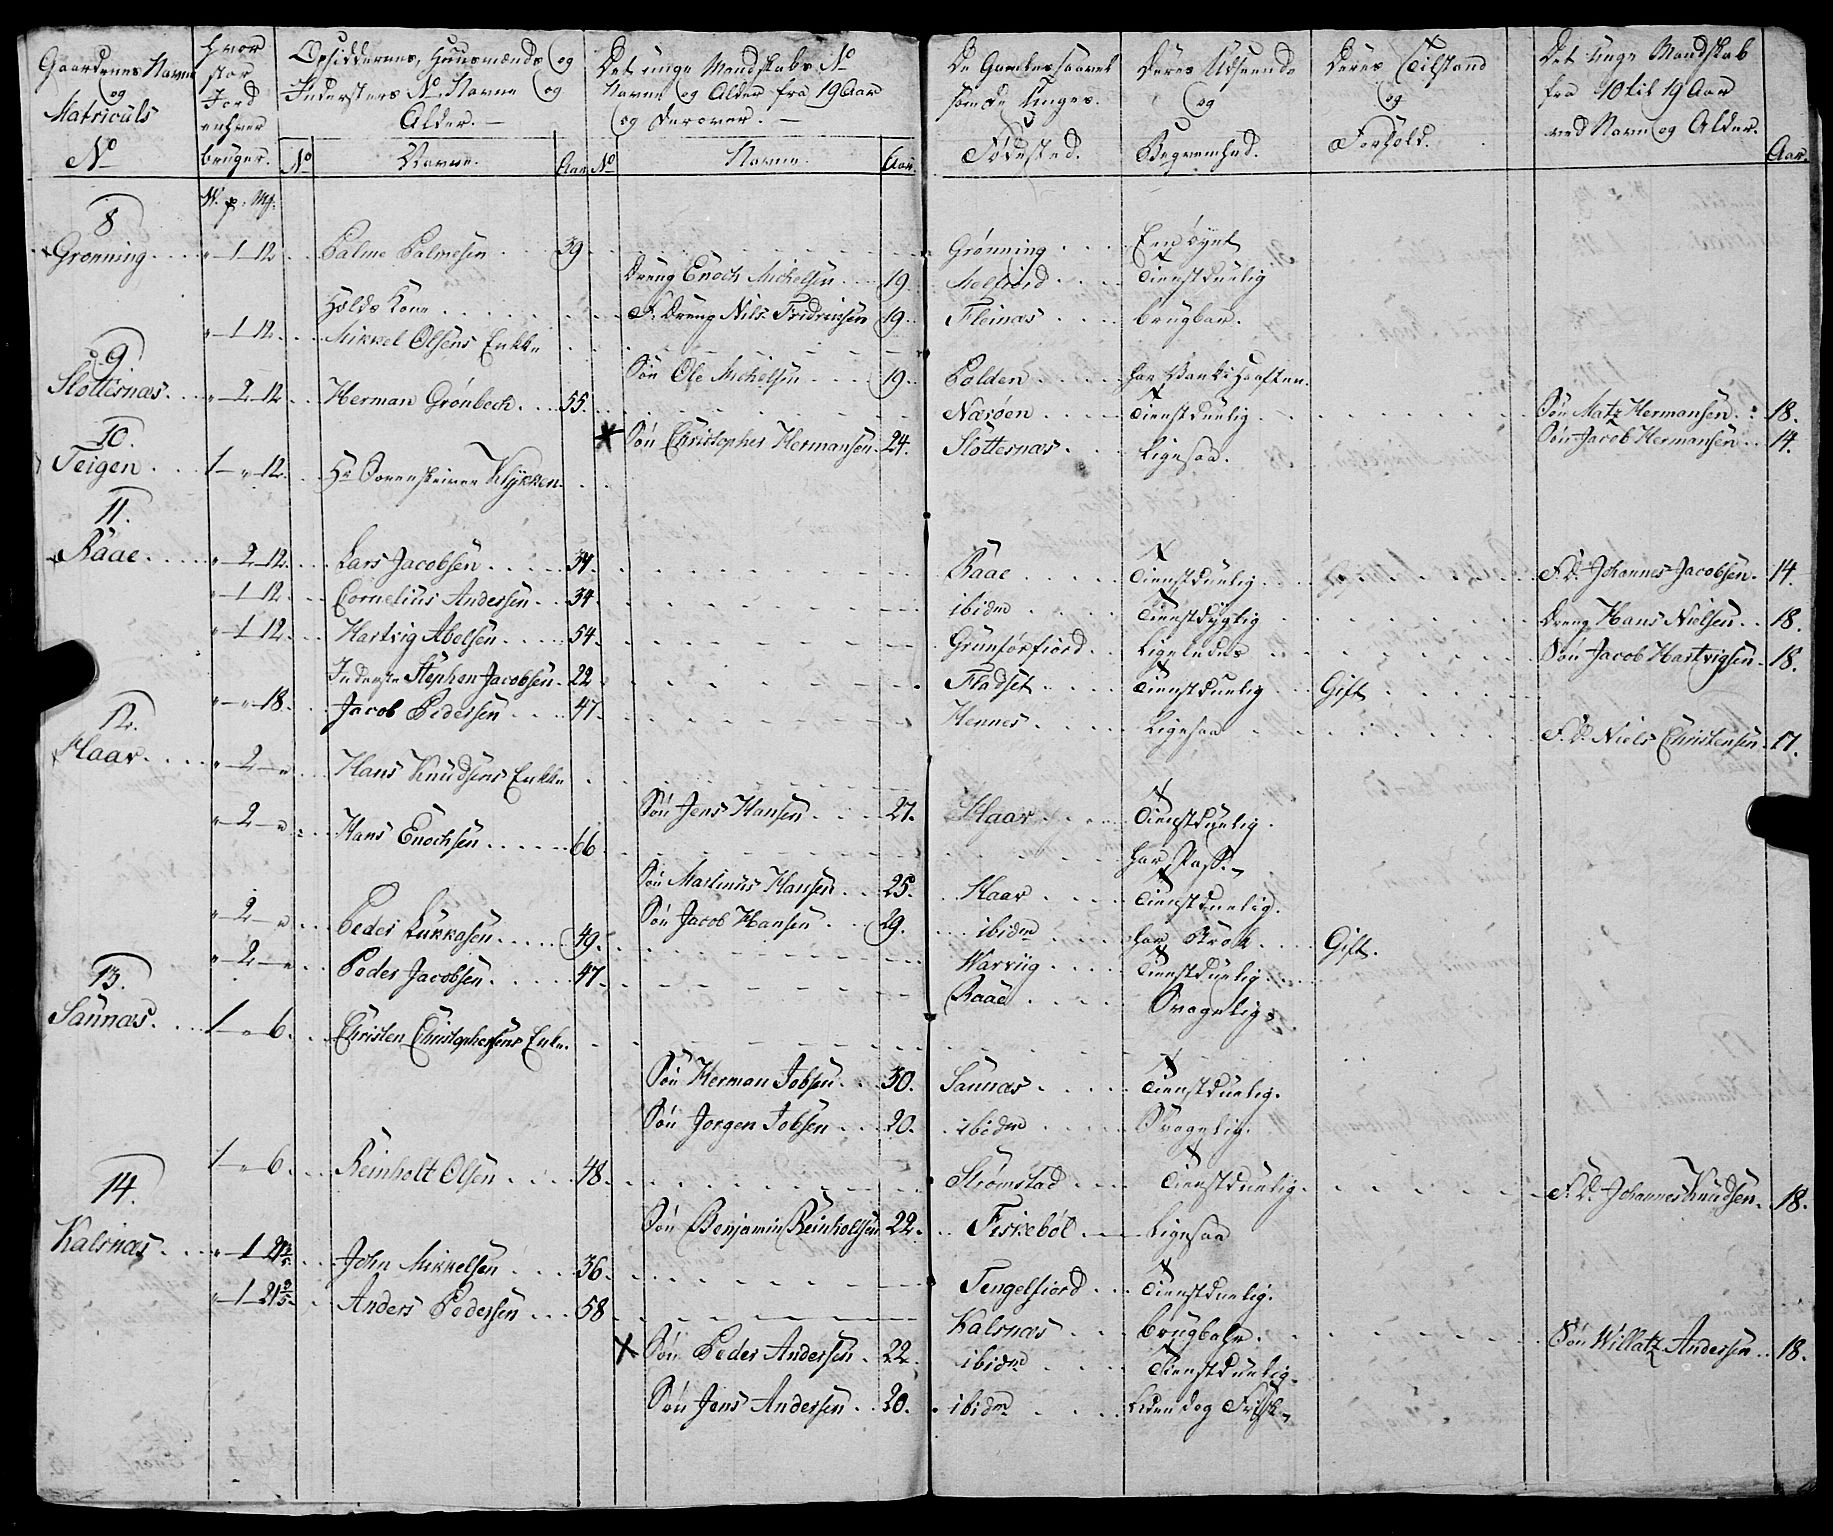 Gaardenes Navne og Matriculs No
Hvor stor Jord enhver bruger.
Opsiddernes, Huusmænds og Indersters No Navne og Alder.
No Navne. Aar
Det unge Mandskabs No Navne og Alder fra 19 Aar og derover.
No Navne. Aar.
De Gamles saavel som de Unges Fødested.
Deres Udseende og Begvemhed.
Deres Tilstand og Forhold.
Det unge Mandskab fra 10 til 19 Aar ved Navn og Alder.
Aar.
W. p. Mk.
8
Grønning " 1 12 Palme Palmesen 39 Grønning Een øyet
Dreng Enoch Michelsen 19 Melfiord Tienstduelig
Holds Kone F. Dreng Nils Fridrichsen 19 Fleinæs brugbar.
" 1 12 Mikkel Olsens Enkke
Søn Ole Michelsen 19 Polden
9
Slotternæs " 2 12 Herman Grønbech 55 Nærøen Tienstduelig Søn Matz Hermansen 18.
X Søn Christopher Hermansen 24. Slotternæs Ligesaa. Søn Jacob Hermansen 14.
10.
Teigen 1 " 12 Hr Sorenskriver Klykken
11.
Raae " 2 12 Lars Jacobsen 34 Raae Tienstduelig F. D. Johannes Jacobsen 14.
" 1 12 Cornelius Andersen 34 ibidm Tienstdygtig Dreng Hans Nielsen 18.
" 1 12 Hartvig Abelsen 54 Grunførfiord Ligeledes Søn Jacob Hartvigsen 18.
Inderste Stephen Jacobsen 22 Fladset Tienstduelig Gift
" " 18 Jacob Pedersen 47 Hennes Ligesaa F. D. Niels Christensen 17.
12.
Haar " 2 " Hans Knudsens Enkke
Søn Jens Hansen 27. Haar Tienstduelig.
" 2 " Hans Enochsen 66 har Pass.
Søn Martinus Hansen 25. Haar Tienstduelig.
Søn Jacob Hansen 29. ibidm har Brok Gift.
" 2 " Peder Lukkasen 49. Warviig Tienstduelig.
" 2 " Peder Jacobsen 47. Raae Svagelig.
13.
Saunæs 1 " 6. Christen Christophersens Enke.
Søn Herman Jobsen 30. Saunæs Tienstduelig.
Søn Jørgen Jobsen 20. ibidm Svagelig.
1 " 6. Reinholt Olsen 48. Strømstad Tienstduelig. F. D. Johannes Knudsen 18.
Søn Benjamin Reinholtsen 22. Fiskebøl Ligesaa
14.
Kalsnæs " 1 21 2/5 John Mikkelsen 36. Tengelfiord Tienstduelig.
" 1 21 2/5 Anders Pedersen 58 Kalsnæs brugbahr. Søn Willatz Andersen 18.
X Søn Peder Andersen 22. ibidm Tienstduelig.
Søn Jens Andersen 20. ibidm Liden dog Frisk